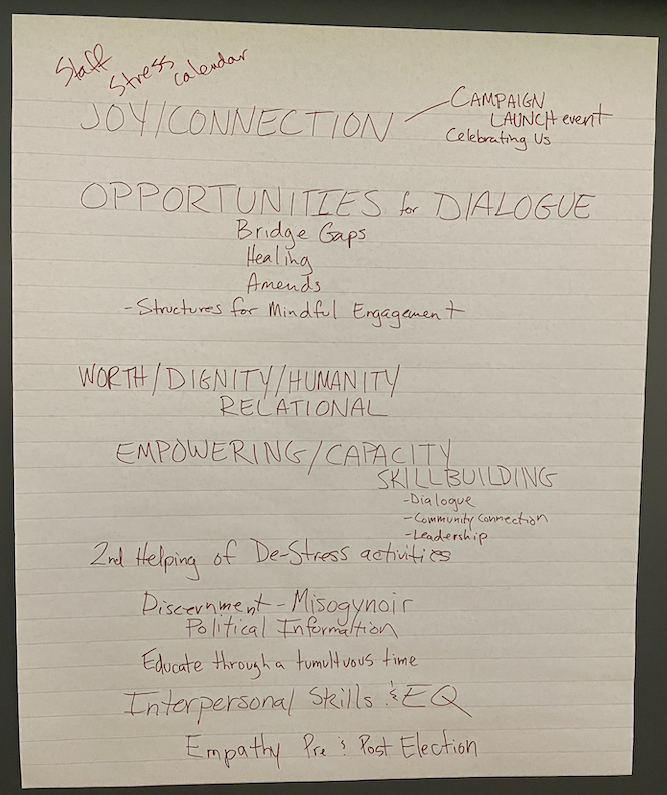 Staff
Stress
Calendar
JOY/CONNECTION
CAMPAIGN
LAUNCH event
Celebrating Us
OPPORTUNITIES for DIALOGUE
Bridge Gaps
Healing
Amends
-Structures for Mindful Engagement
WORTH/DIGNITY/HUMANITY
RELATIONAL
EMPOWERING/CAPACITY
SKILLBUILDING
-Dialogue
-Community Connection
-Leadership
2nd Helping of De-Stress activities
Discernment - Misogynoir
Political Information
Educate through a tumultuous time
Interpersonal Skills & EQ
Empathy Pre & Post Election